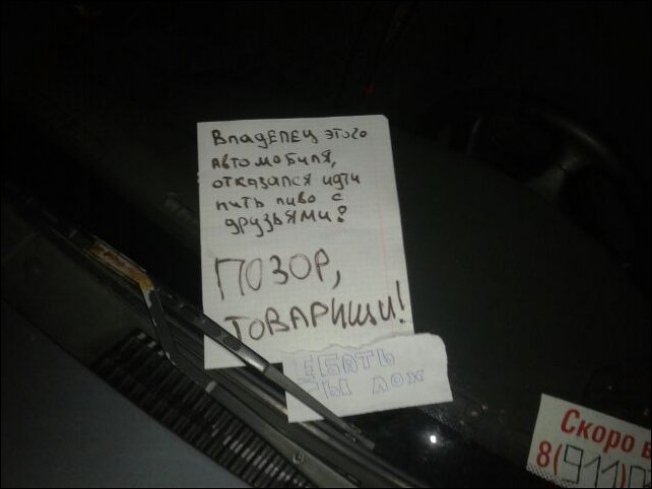 Владелец этого
автомобиля,
отказался идти
пить пиво с
друзьями!
ПОЗОР,
ТОВАРИЩИ!
ЕБАТЬ
ТЫ ЛОХ
Скоро в
8(911)